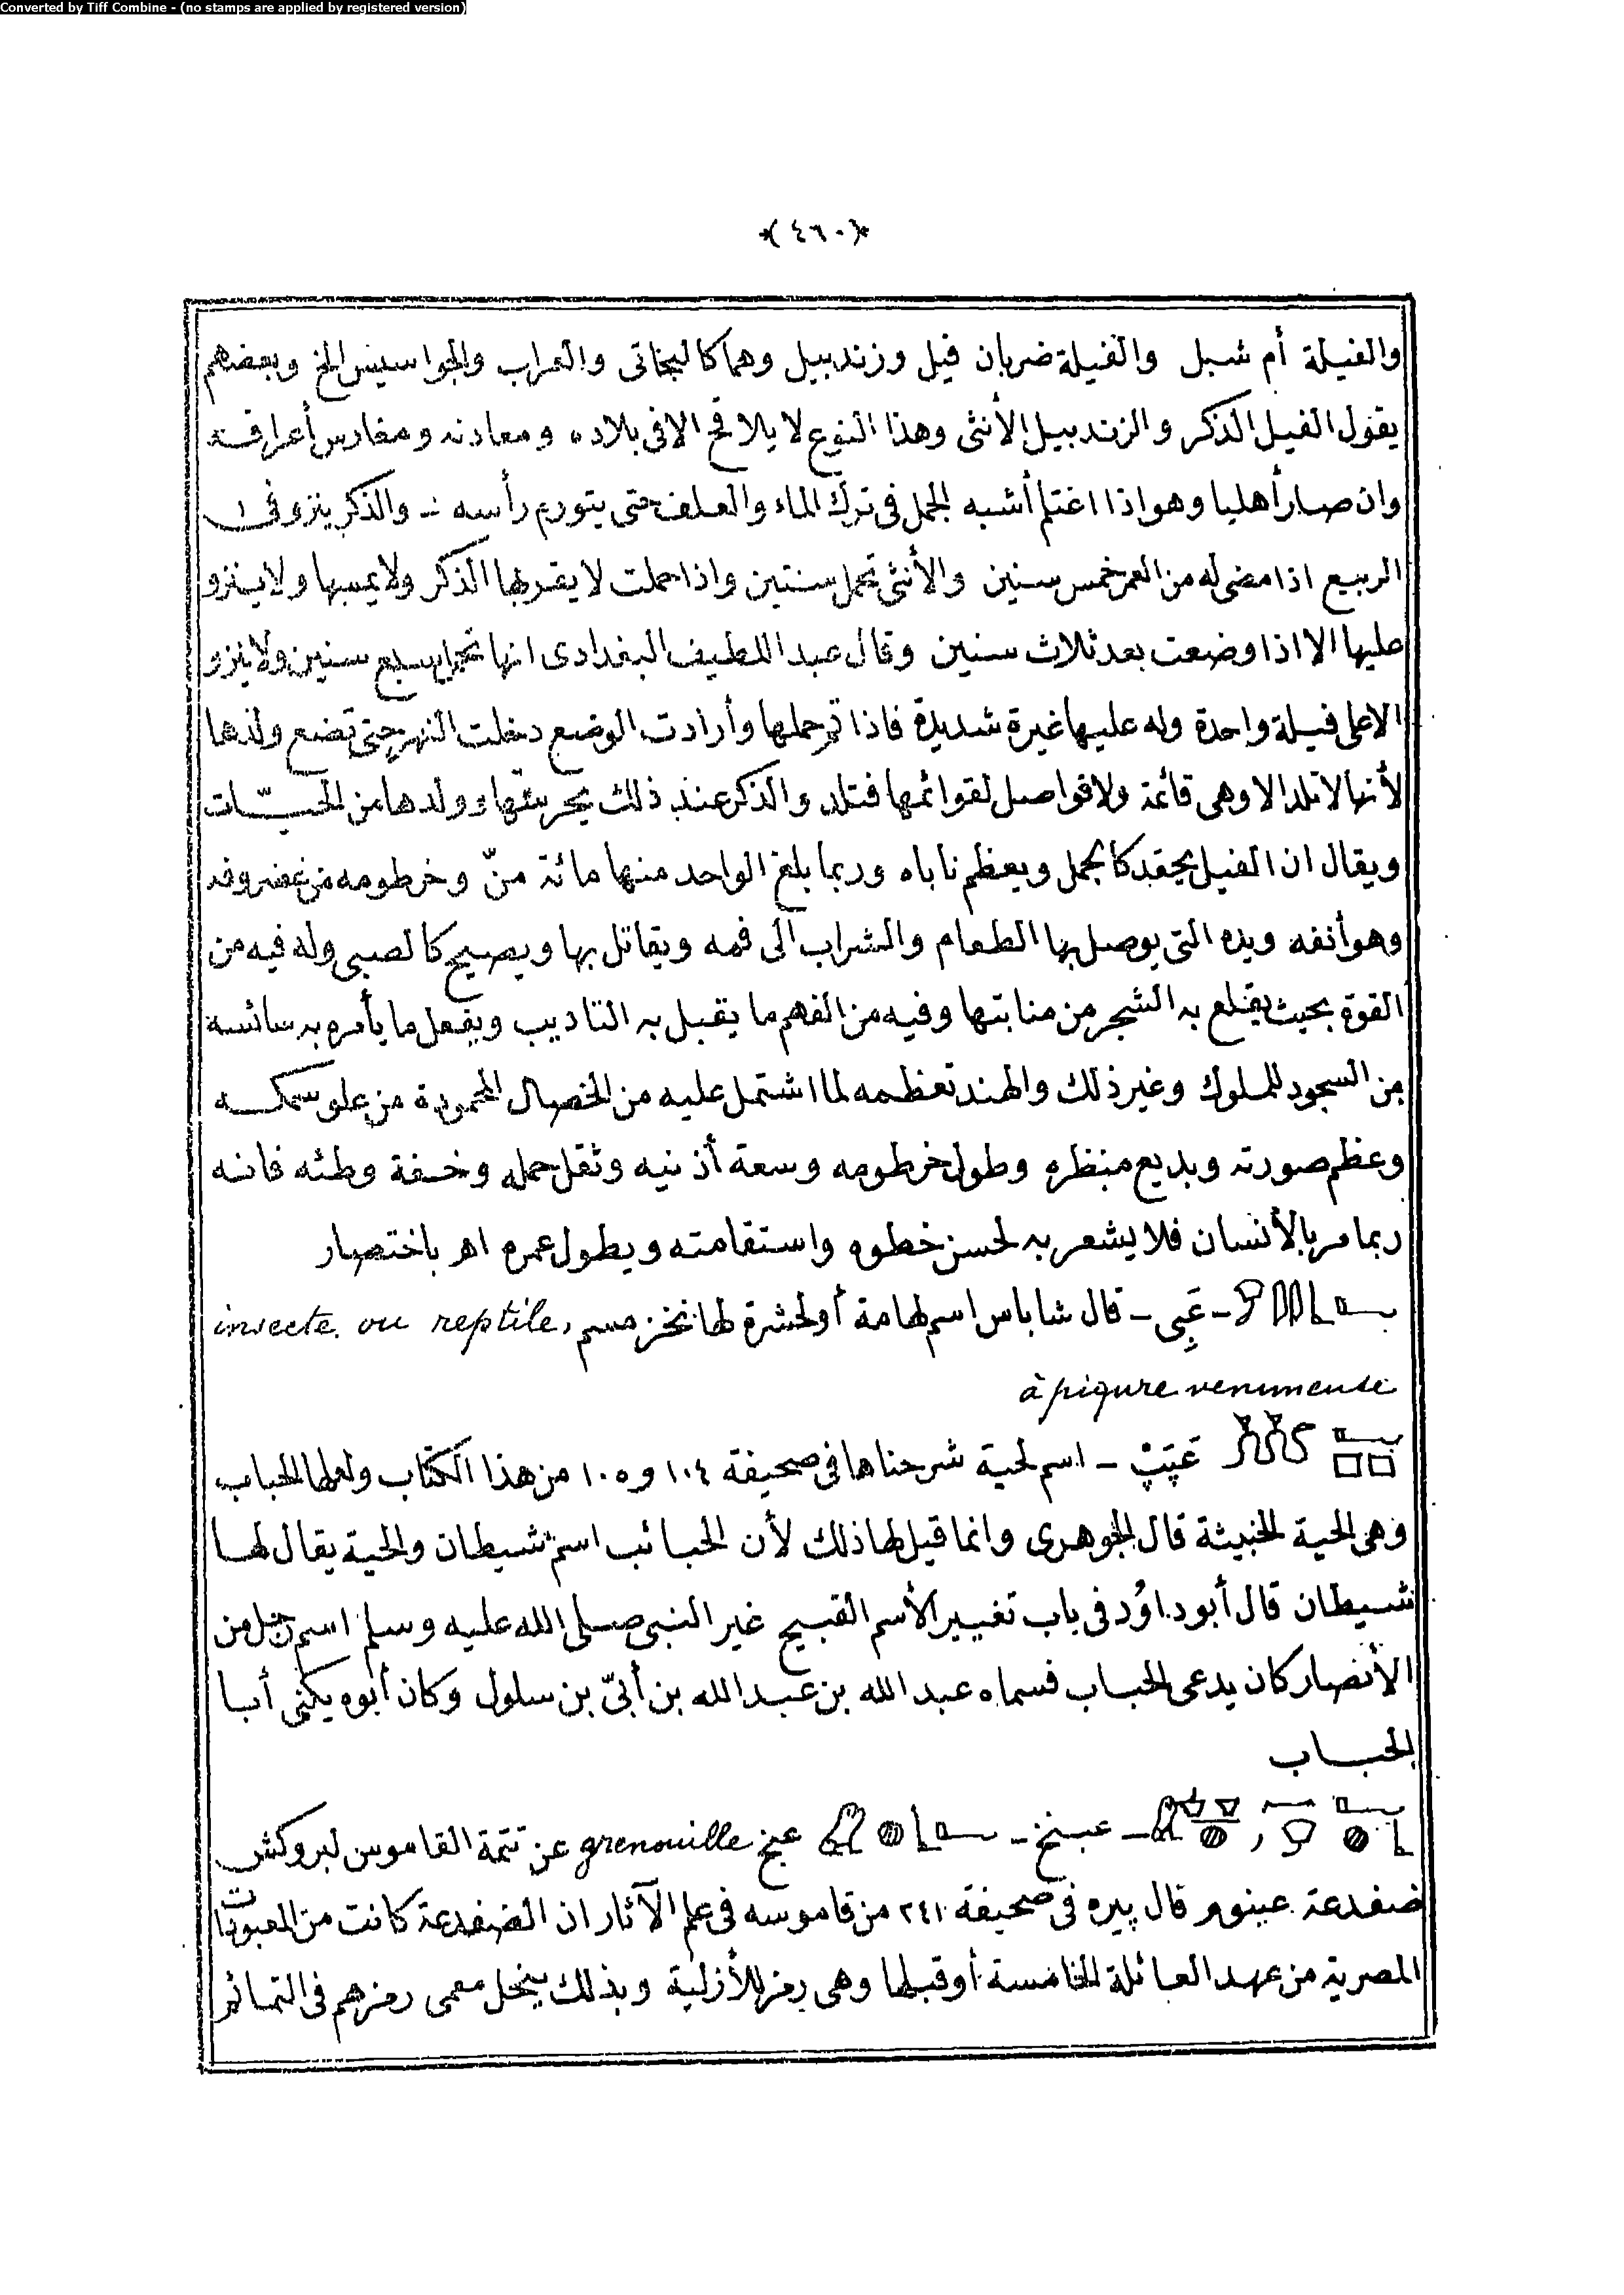 Converted by Tiff Combine - (no stamps are applied by registered version)
*(٤٦٠)*
والفيلة أم شبل والفيلة ضربان فيل وزندبيل وهما كالبخاتى والعراب والجواميس الخ وبعضهم
يقول الفيل الذكر والزندبيل الأنثى وهذا النوع لا يلاقح الا فى بلاده ومعادنه ومغارس أعراقه
وان صار أهليا وهو اذا اغتلم أشبه الجمل فى ترك الماء والعلف حتى يتورم رأسه - والذكر ينزو فى
الربيع اذا مضى له من العمر خمس سنين والأنثى تحمل سنتين واذا حملت لا يقربها الذكر ولا يمسها ولا ينزو
عليها الا اذا وضعت بعد ثلاث سنين وقال عبد اللطيف البغدادى انها تحمل سبع سنين ولا ينزو
الا على فيلة واحدة وله عليها غيرة شديدة فاذا تم حملها وأرادت الوضع دخلت النهر حتى تضع ولدها
لأنها لا تلد الا وهى قائمة ولا فواصل لقوائمها فتلد والذكر عند ذلك يحرسها وولدها من الحيّات
ويقال ان الفيل يحقد كالجمل ويعظم ناباه وربما بلغ الواحد منها مائة منّ وخرطومه من غضروف
وهو أنفه ويده التى يوصل بها الطعام والشراب الى فمه ويقاتل بها ويصيح كالصبى وله فيه من
القوة بحيث يقلع به الشجر من منابتها وفيه من الفهم ما يقبل به التاديب ويفعل ما يأمره به سائسه
من السجود للملوك وغير ذلك والهند تعظمه لما اشتمل عليه من الخصال المحمودة من علو سمكه
وعظم صورته وبديع منظره وطول خرطومه وسعة أذنيه وثقل حمله وخفة وطئه فانه
ربما مر بالأنسان فلا يشعر به لحسن خطوه واستقامته ويطول عمره اهـ باختصار
- عَبِى - قال شاباس اسم لهامة أو لحشرة لها نخز مسم, insecte ou reptile
à piqure venimeuse
عَپَپْ - اسم لحية شرحناها فى صحيفة ١٠٤ و ١٠٥ من هذا الكتاب ولعلها الحباب
وهى الحية الخبيثة قال الجوهرى وانما قيل لها ذلك لأن الحبائب اسم شيطان والحية يقال لها
شيطان قال أبو داوُد فى باب تغيير الأسم القبيح غير النبى صلى الله عليه وسلم اسم رجل من
الأنصار كان يدعى الحباب فسماه عبد الله بن عبد الله بن أبىّ بن سلول وكان أبوه يكنى أبا
الحباب
- عبنخ - عبخ grenouille عن تتمة القاموس لبروكش
ضفدعة عبنوم قال پيره فى صحيفة ٢٤١ من قاموسه فى علم الآثار ان الضفدعة كانت من المعبودات
المصرية من عهد العائلة الخامسة أو قبلها وهى رمز للأزلية وبذلك ينحل معمى رمزهم فى التمائم